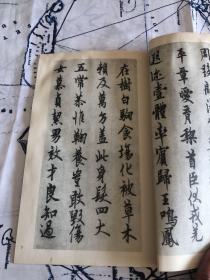 周發商湯
平章愛育黎首臣伏戎羌
遐迩壹體率賓歸王鳴鳳
在樹白駒食場化被草木
賴及萬方盖此身髮四大
五常恭惟鞠養豈敢毀傷
女慕貞絜男效才良知過